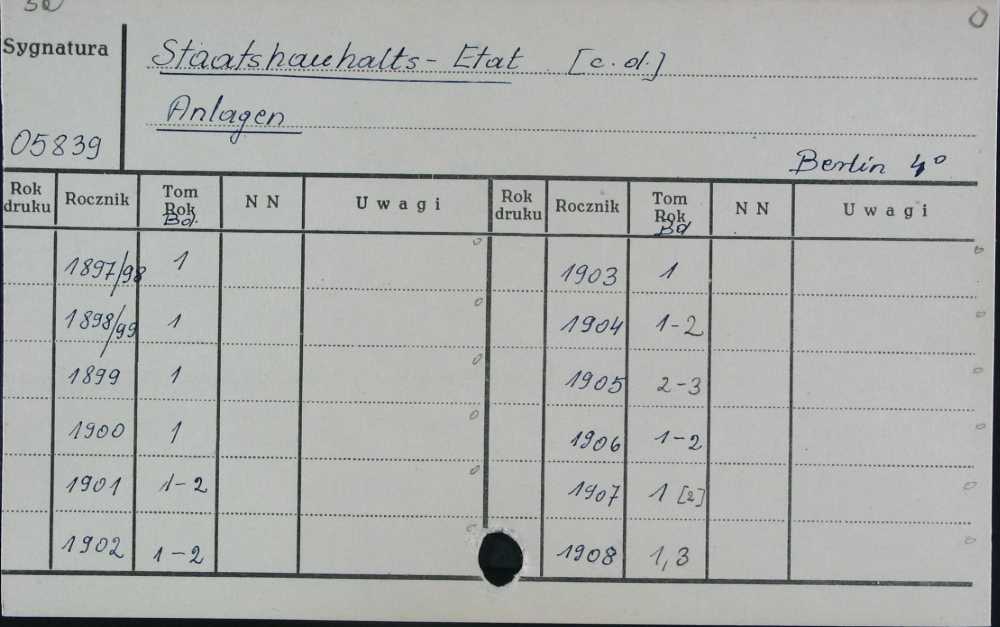 Sygnatura
Staatshauhalts-Etat [c.d.]
Anlagen
05839
Berlin 4°
Rok druku Rocznik Tom Rok Bd. NN Uwagi Rok druku Rocznik Tom Rok Bd NN Uwagi
1897/98 1 1903 1
1898/99 1 1904 1-2
1899 1 1905 2-3
1900 1 1906 1-2
1901 1-2 1907 1 [2]
1902 1-2 1908 1,3